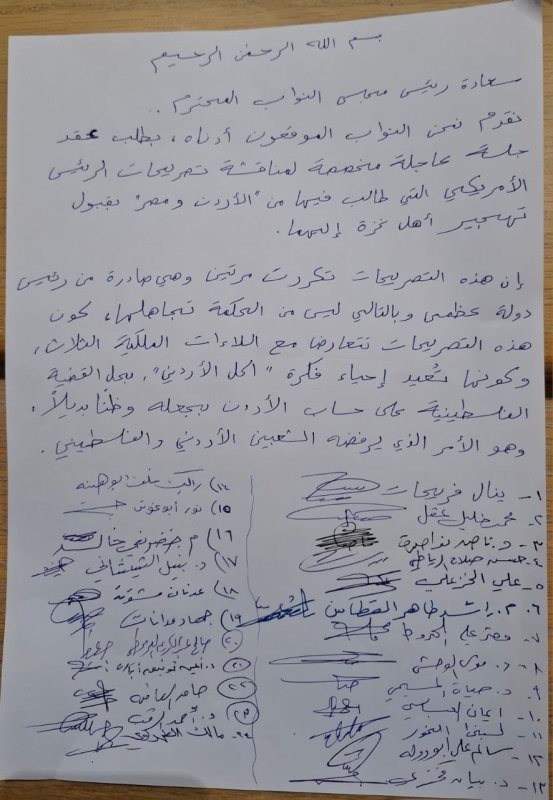 بسم الله الرحمن الرحيم
سعادة رئيس مجلس النواب المحترم ..
نتقدم نحن النواب الموقعون أدناه، بطلب عقد
جلسة عاجلة مخصصة لمناقشة تصريحات الرئيس
الأمريكي التي طالب فيها من "الأردن ومصر" بقبول
تهجير أهل غزة إليها.
إن هذه التصريحات تكررت مرتين وهي صادرة من رئيس
دولة عظمى وبالتالي ليس من الحكمة تجاهلها، كون
هذه التصريحات تتعارض مع اللاءات الملكية الثلاث،
وكونها تُعيد إحياء فكرة "الحل الأردني"، بحل القضية
الفلسطينية على حساب الأردن بجعله وطنا بديلاً.
وهو الأمر الذي يرفضه الشعبين الأردني والفلسطيني.
١- ينال فريحات
٢- محمد خليل عقل
٣- د. ناصر نواصرة
٤- حسين
٥- علي الخزعلي
٦. م. راشد طاهر القطامين
٧- معتز
٨- د.
٩- د. حياة المسيمي
١٠- ايمان العباسي
١١- لبنى النمور
١٢- سالم علي ابودولة
١٣- د. بيان
١٤)
١٥) نور أبوغوش
١٦) م خضر بني خالد
١٧) د. نبيل الشيشاني
١٨) عدنان مشوقة
١٩) جهاد مدانات
٢٠) صالح
٢١)
٢٢)
٢٣) د. أحمد الرقب
٢٤. مالك الطهراوي